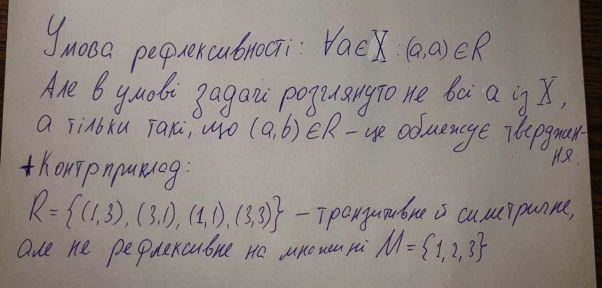 Умова рефлексивності: ∀a∈X : (a,a)∈R
Але в умові задачі розглянуто не всі a із X,
а тільки такі, що (a,b)∈R – це обмежує тверджен-
ня.
+ Контрприклад:
R = {(1,3), (3,1), (1,1), (3,3)} – транзитивне й симетричне,
але не рефлексивне на множині M = {1,2,3}